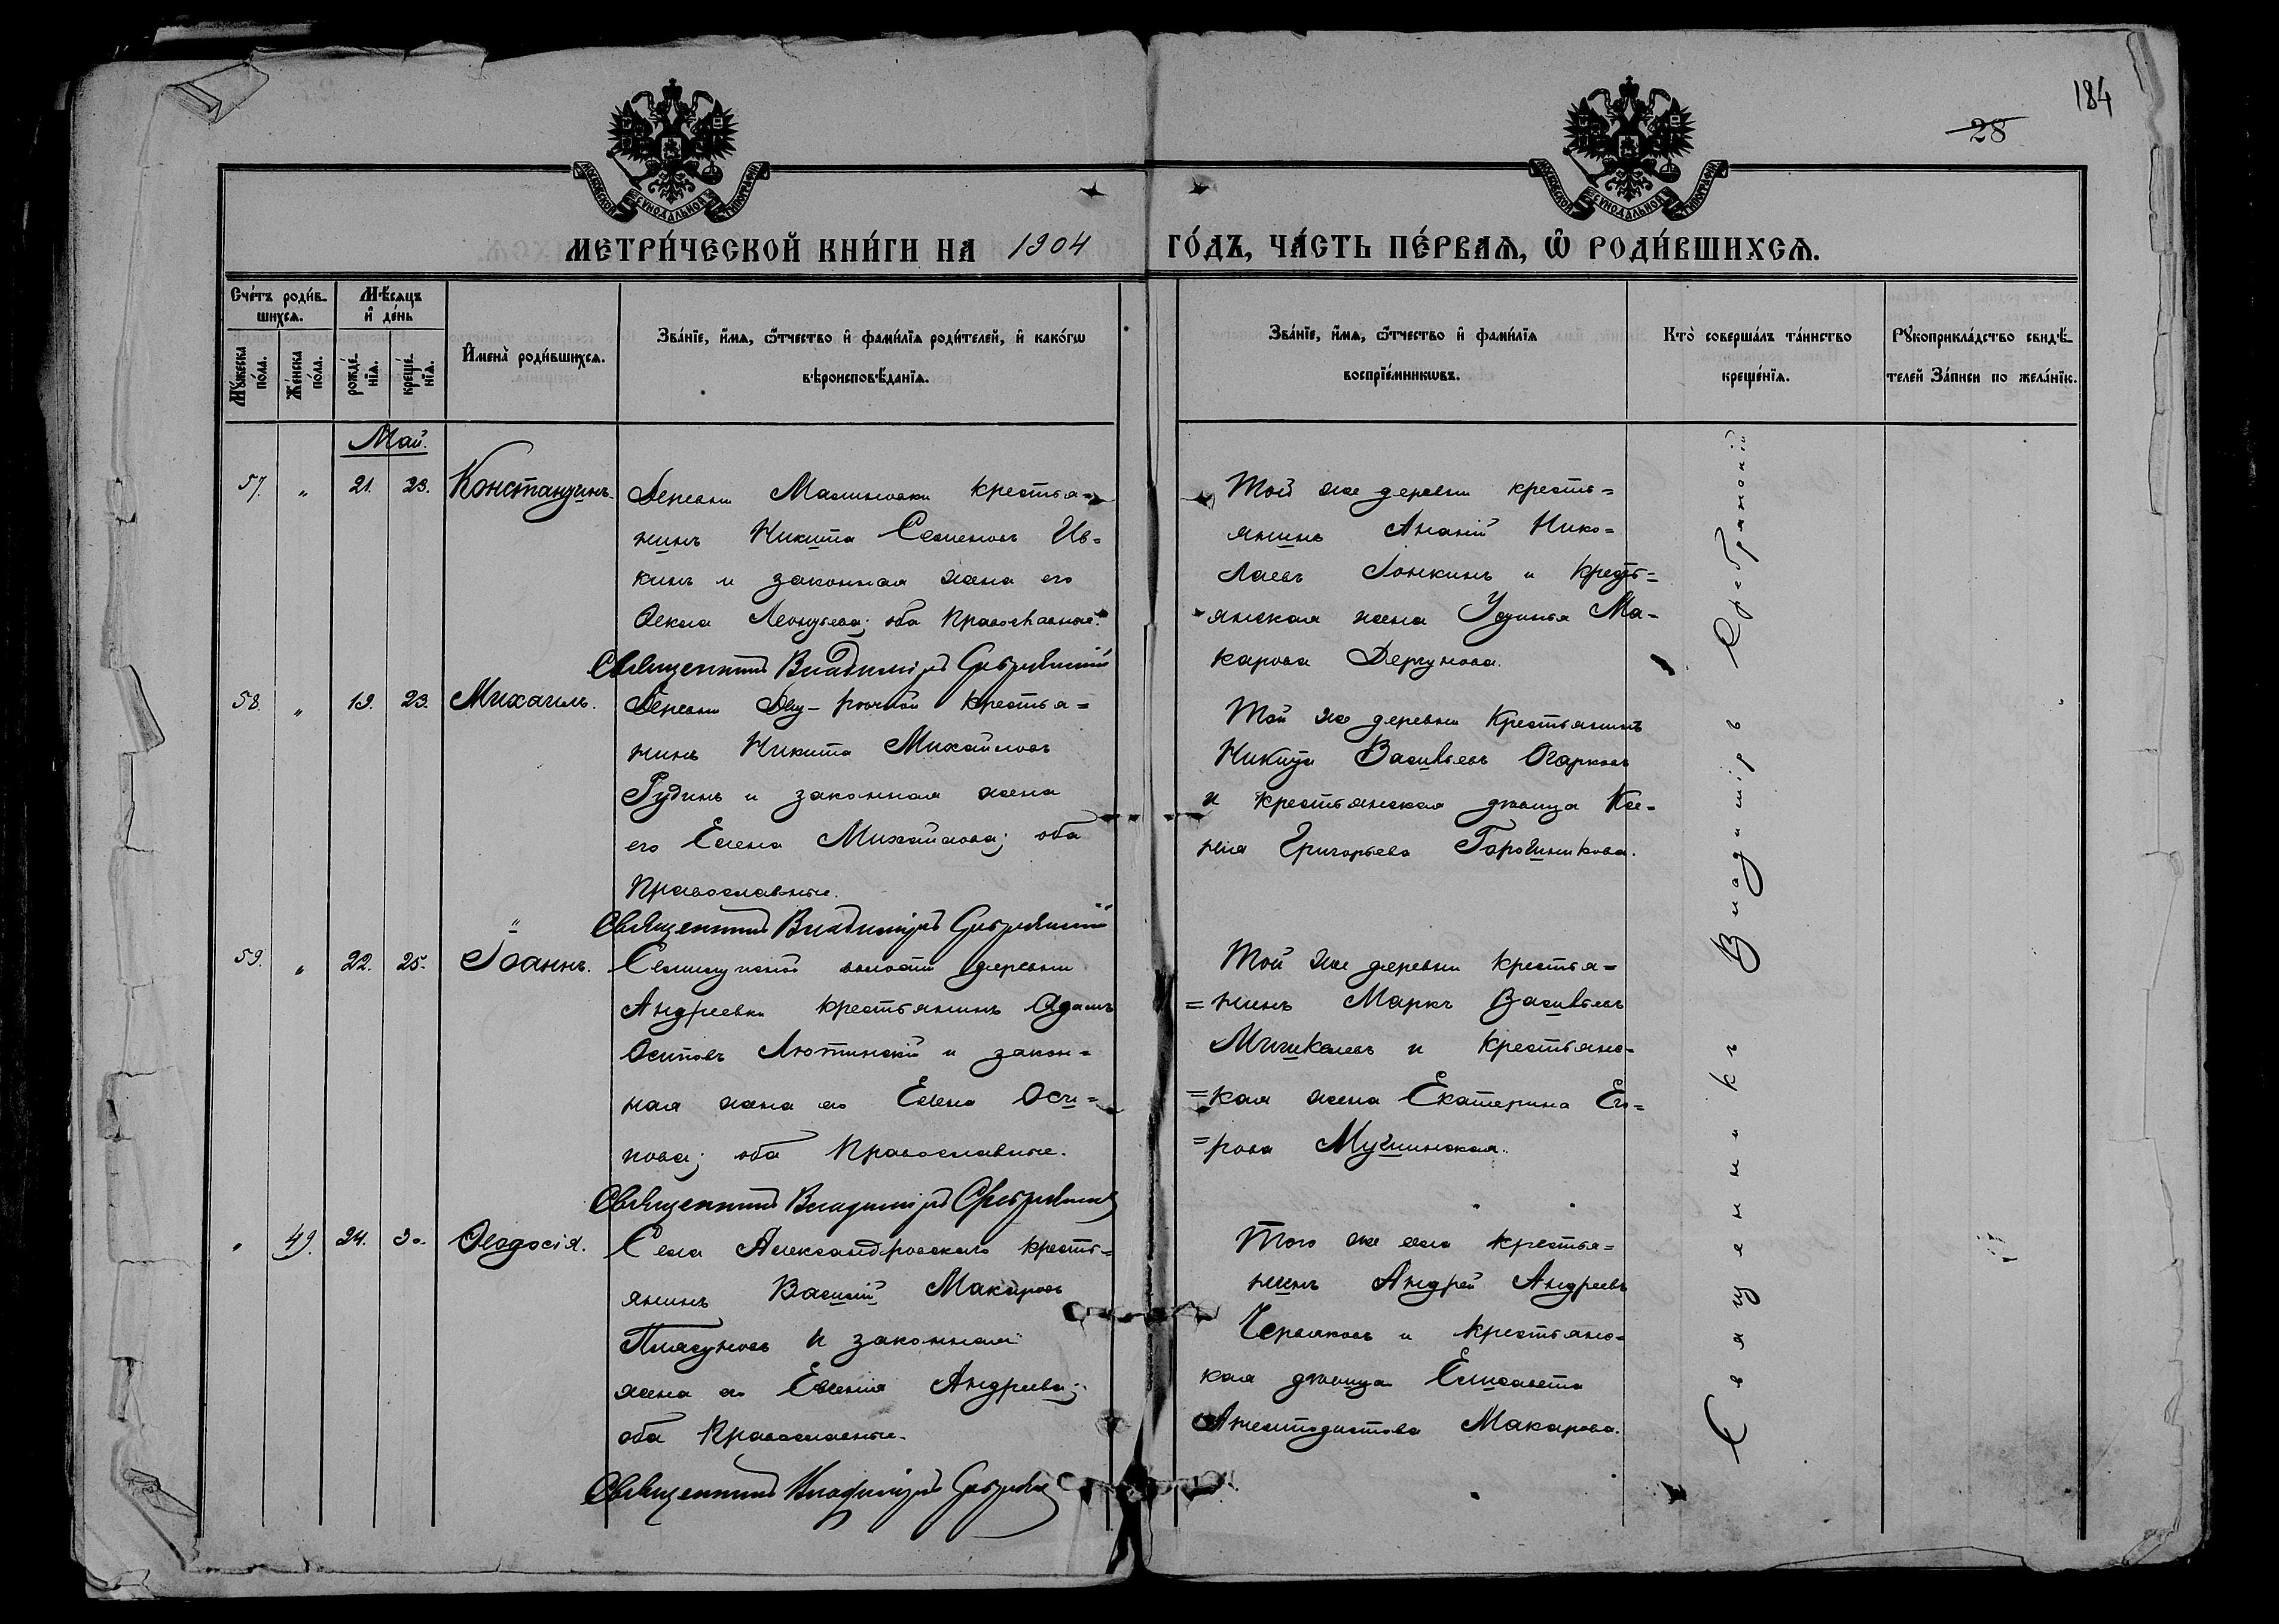 184
28
МОСКОВСКОЙ СѴНОДАЛЬНОЙ ТИПОГРАФІИ
МОСКОВСКОЙ СѴНОДАЛЬНОЙ ТИПОГРАФІИ
МЕТРИ́ЧЕСКОЙ КНИ́ГИ НА 1904 ГО́ДЪ, ЧА́СТЬ ПЕ́РВАѦ, Ѽ РОДИ́ВШИХСѦ.
Сче́тъ роди́в-
шихсѧ.
Мꙋ́жеска по́ла.
Же́нска по́ла.
Мѣ́сѧцъ и҆ де́нь
рожде́нїѧ.
креще́нїѧ.
И҆мена̀ роди́вшихсѧ.
Зва́нїе, и҆́мѧ, ѻ҆́тчество и҆ фами́лїѧ роди́телей, и҆ како́гѡ
вѣроисповѣ́данїѧ.
Зва́нїе, и҆́мѧ, ѻ҆́тчество и҆ фами́лїѧ
воспрїе́мникѡвъ.
Кто̀ соверша́лъ та́инство
креще́нїѧ.
Рꙋкоприкла́дство свидѣ́-
телей За́писи по жела́нїю.
Май.
57. " 21. 23. Константинъ.
Деревни Масиновки крестья=
нинъ Никита Семеновъ Ив=
кинъ и законная жена его
Ѳекла Леонтьева; оба Православные.
Священникъ Владиміръ Сребрянскій
Той же деревни кресть=
янинъ Ананій Нико=
лаевъ Гонкинъ и кресть=
янская жена Устинья Ма-
карова Дергунова.
58. " 19. 23. Михаилъ.
Деревни Дву-рѣчной крестья=
нинъ Никита Михайловъ
Рудинъ и законная жена
его Елена Михайлова; оба
Православные.
Священникъ Владиміръ Сребрянскій
Той же деревни Крестьянинъ
Никита Васильевъ Огарковъ
и крестьянская дѣвица Ксе-
нія Григорьева Горошникова.
59. " 22. 25. Іоаннъ.
волости деревни
Андреевки крестьянинъ Адамъ
Осиповъ Лютинскій и закон=
ная жена его Елена Оси=
пова; оба Православные.
Священникъ Владиміръ Сребрянскій
Той же деревни крестья=
=нинъ Маркъ Васильевъ
и Крестьянс-
=кая жена Екатерина Его=
=рова
" 49. 24. 30. Ѳеодосія.
Села Александровскаго кресть=
янинъ Василій Макаровъ
Плясуновъ и законная
жена его Евгенія Андреева;
оба Православные.
Священникъ Владиміръ Сребрянскій
Того же села крестья=
нинъ Андрей Андреевъ
и крестьянс-
кая дѣвица Елисавета
Макарова.
Священникъ Владиміръ Сребрянскій